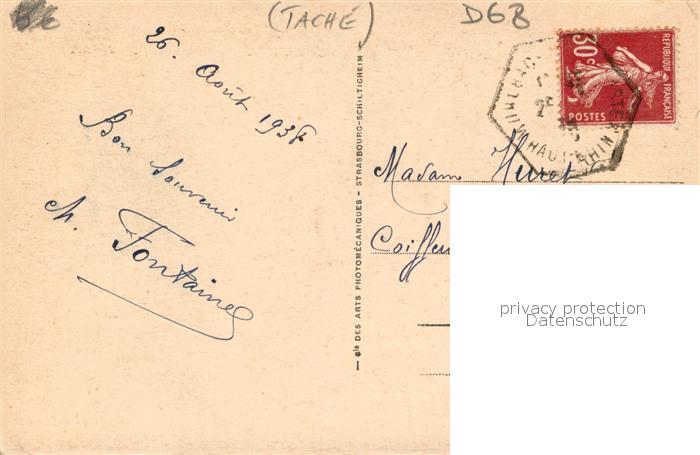 6€
(TACHÉ)
D68
26. Août 1938
Bon Souvenir
M. Fontaine
Cie DES ARTS PHOTOMÉCANIQUES - STRASBOURG-SCHILTIGHEIM
30c
RÉPUBLIQUE FRANÇAISE
POSTES
HAUT-RHIN
Madame Huret
Coiffeu
privacy protection
Datenschutz